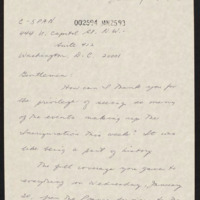 C-SPAN 002594 MAR2593
444 N. Capitol St. N.W.
Suite 412
Washington D.C. 20001
Gentlemen:
How can I thank you for
the privilege of seeing so many
of the events making up the
Inauguration this week? It was
like being a part of history.
The full coverage you gave to
everything on Wednesday January
from the